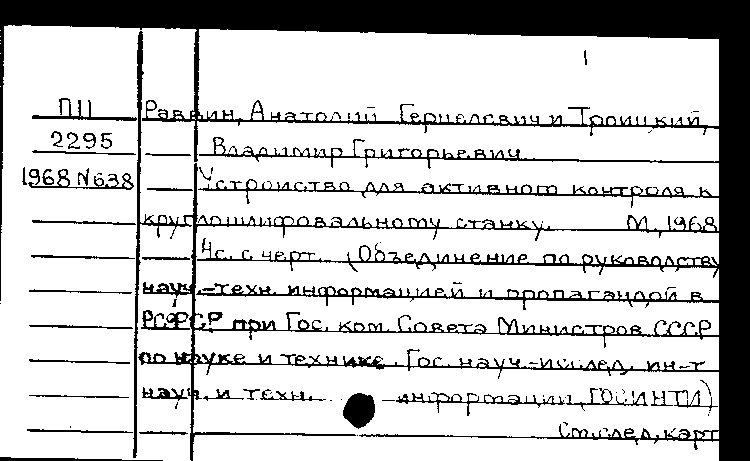 1
П11 Раввин, Анатолий Герцелевич и Троицкий,
2295 Владимир Григорьевич
1968 N638 Устройство для активного контроля к
круглошлифовальному станку. М., 1968
4с. с черт. (Объединение по руководству
науч.-техн. информацией и пропагандой в
РСФСР при Гос. ком. Совета Министров СССР
по науке и технике. Гос. науч.-исслед. ин-т
науч. и техн. информации, ГОСИНТИ)
См.след.карт